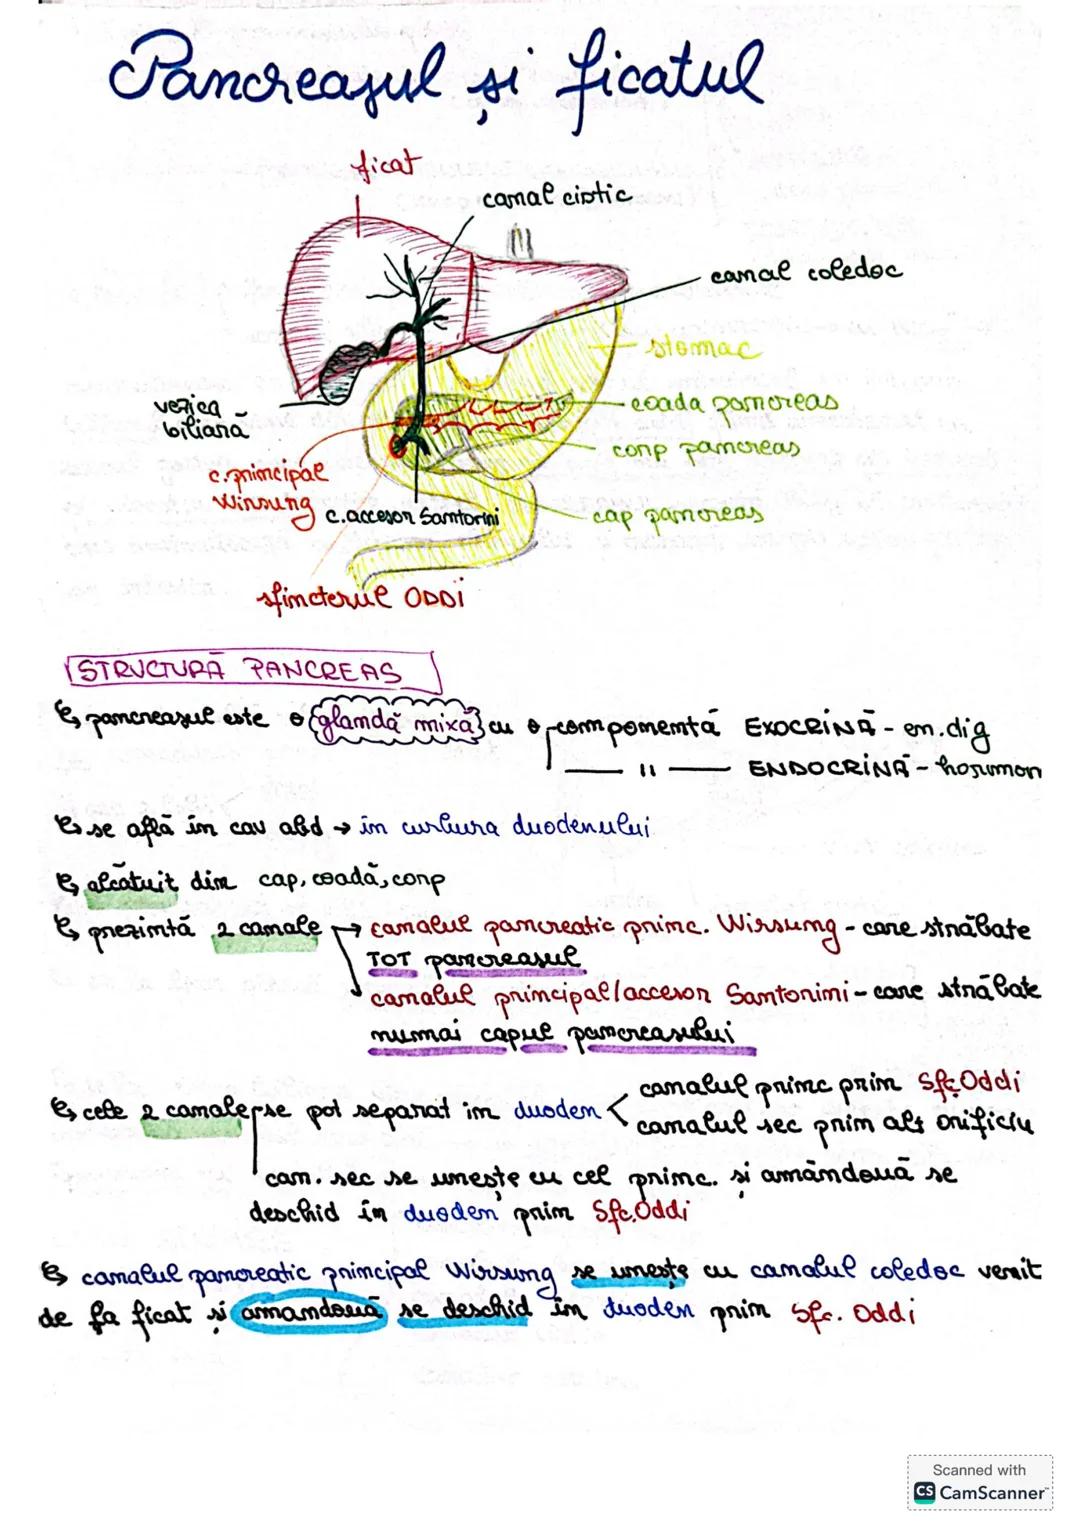 Pancreasul și ficatul
ficat
canal cistic
canal coledoc
stomac
coada pancreas
vezica
biliară
corp pancreas
c. principal
Wirsung
c. accesor Santorini
cap pancreas
sfincterul ODDi
STRUCTURĂ PANCREAS
pancreasul este o glandă mixă cu o componentă EXOCRINĂ - en. dig
— 11 — ENDOCRINĂ - hormon
se află în cav abd → în curbura duodenului
alcătuit din cap, coadă, corp
prezintă 2 canale → canalul pancreatic princ. Wirsung - care străbate
TOT pancreasul
canalul principal/accesor Santorini - care străbate
numai capul pancreasului
cele 2 canale se pot separat in duoden < canalul princ prin Sfc Oddi
canalul sec prin alt orificiu
can. sec se unește cu cel princ. și amândouă se
deschid în duoden prin Sfc. Oddi
canalul pancreatic principal Wirsung se unește cu canalul coledoc venit
de la ficat și amandouă se deschid în duoden prin Sfc. Oddi
Scanned with
CS CamScanner